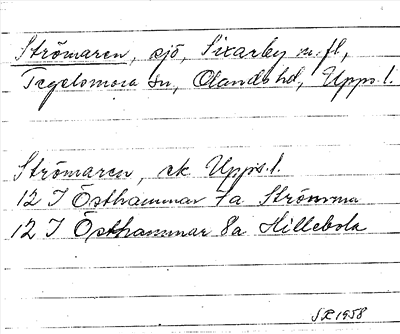 Strömaren, sjö, Sixarby m. fl,
Tegelsmora sn, Olands hd, Upps. l.
Strömaren, ek Upps. l.
12 I Östhammar 7a Strömma
12 I Östhammar 8a Hillebola
SR 1958